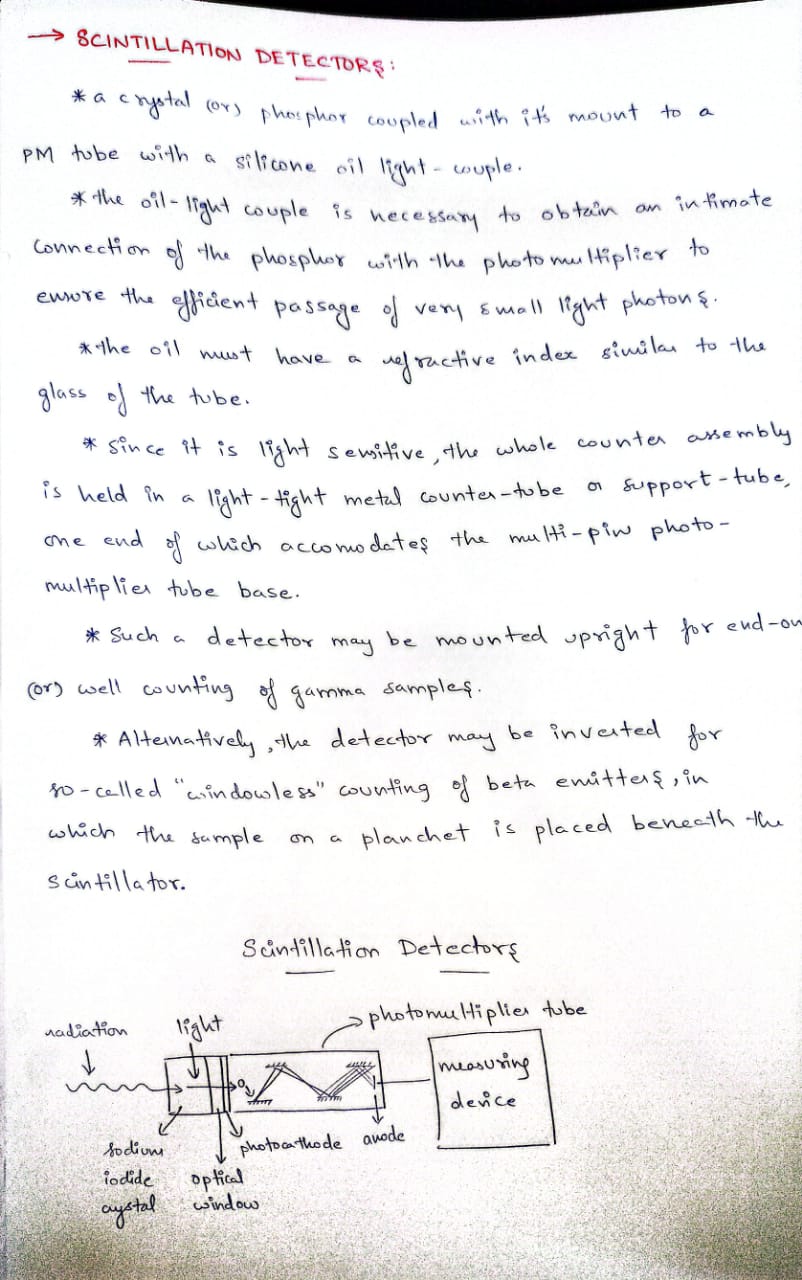 → SCINTILLATION DETECTORS:
* a crystal (or) phosphor coupled with it's mount to a
PM tube with a silicone oil light - couple.
* the oil-light couple is necessary to obtain an intimate
connection of the phosphor with the photomultiplier to
ensure the efficient passage of very small light photons.
* the oil must have a refractive index similar to the
glass of the tube.
* Since it is light sensitive, the whole counter assembly
is held in a light-tight metal counter-tube or support-tube,
one end of which accomodates the multi-pin photo-
multiplier tube base.
* Such a detector may be mounted upright for end-on
(or) well counting of gamma samples.
* Alternatively, the detector may be inverted for
so-called "windowless" counting of beta emitters, in
which the sample on a planchet is placed beneath the
scintillator.
Scintillation Detectors
radiation
light
photomultiplier tube
measuring
device
sodium
iodide
crystal
optical
window
photocathode
anode